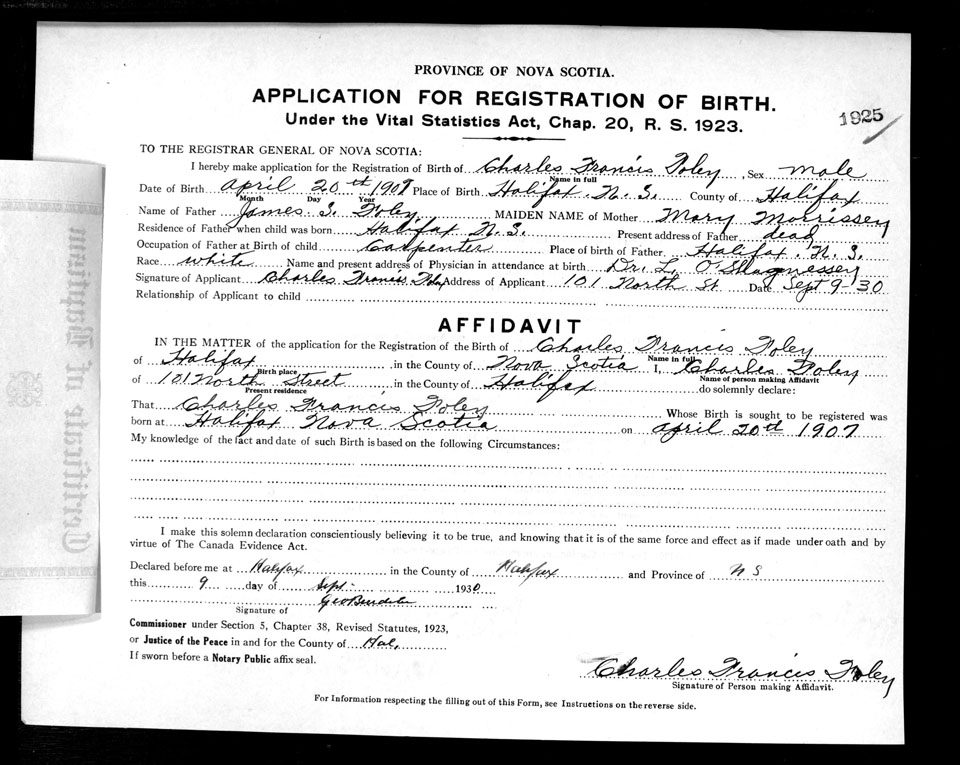 PROVINCE OF NOVA SCOTIA.
APPLICATION FOR REGISTRATION OF BIRTH.
Under the Vital Statistics Act, Chap. 20, R. S. 1923.
1925
TO THE REGISTRAR GENERAL OF NOVA SCOTIA:
I hereby make application for the Registration of Birth of Charles Francis Foley Sex male
Name in full
Date of Birth April 20th 1907 Place of Birth Halifax N. S. County of Halifax
Month Day Year
Name of Father James S. Foley MAIDEN NAME of Mother Mary Morrissey
Residence of Father when child was born Halifax N. S. Present address of Father dead
Occupation of Father at Birth of child Carpenter Place of birth of Father Halifax. N. S.
Race white Name and present address of Physician in attendance at birth Dr. L. O'Shagnessey
Signature of Applicant Charles Francis Foley Address of Applicant 101 North St. Date Sept 9-30
Relationship of Applicant to child
AFFIDAVIT
IN THE MATTER of the application for the Registration of the Birth of Charles Francis Foley
Name in full
of Halifax in the County of Nova Scotia I, Charles Foley
Birth place Name of person making Affidavit
of 101 North Street in the County of Halifax do solemnly declare:
Present residence
That Charles Francis Foley Whose Birth is sought to be registered was
born at Halifax Nova Scotia on April 20th 1907
My knowledge of the fact and date of such Birth is based on the following Circumstances:
I make this solemn declaration conscientiously believing it to be true, and knowing that it is of the same force and effect as if made under oath and by
virtue of The Canada Evidence Act.
Declared before me at Halifax in the County of Halifax and Province of N S
this 9 day of Sept. 1930
Signature of
Commissioner under Section 5, Chapter 38, Revised Statutes, 1923,
or Justice of the Peace in and for the County of Hal.
If sworn before a Notary Public affix seal.
Charles Francis Foley
Signature of Person making Affidavit.
For Information respecting the filling out of this Form, see Instructions on the reverse side.